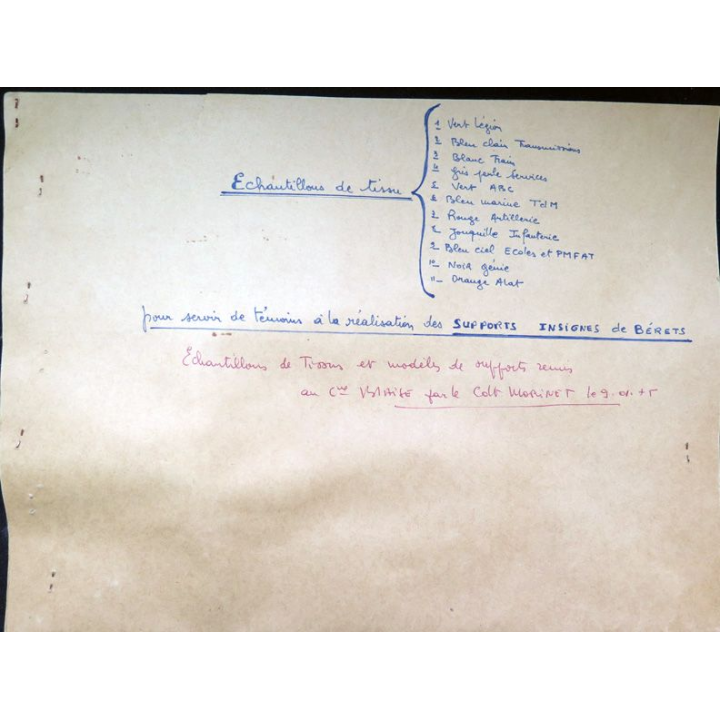 Echantillons de tissu
1 Vert Légion
2 Bleu clair Transmissions
3 Blanc Train
4 gris perle Services
5 Vert ABC
6 Bleu marine TdM
7 Rouge Artillerie
8 Jonquille Infanterie
9 Bleu ciel Ecoles et PMFAT
10 Noir génie
11 Orange Alat
pour servir de témoins à la réalisation des SUPPORTS INSIGNES de BÉRETS
Echantillons de Tissus et modèles de supports remis
au Cne par le Colt MORINET le 9.01.